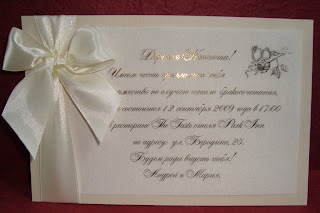 Дорогая Наташа!
Имеем честь пригласить тебя
на торжество по случаю нашего бракосочетания,
состоится 12 сентября 2009 года в 17.00
в ресторане The Taste отеля Park Inn
по адресу: ул. Бородина, 25.
Будем рады видеть тебя!
Андрей и Мария.